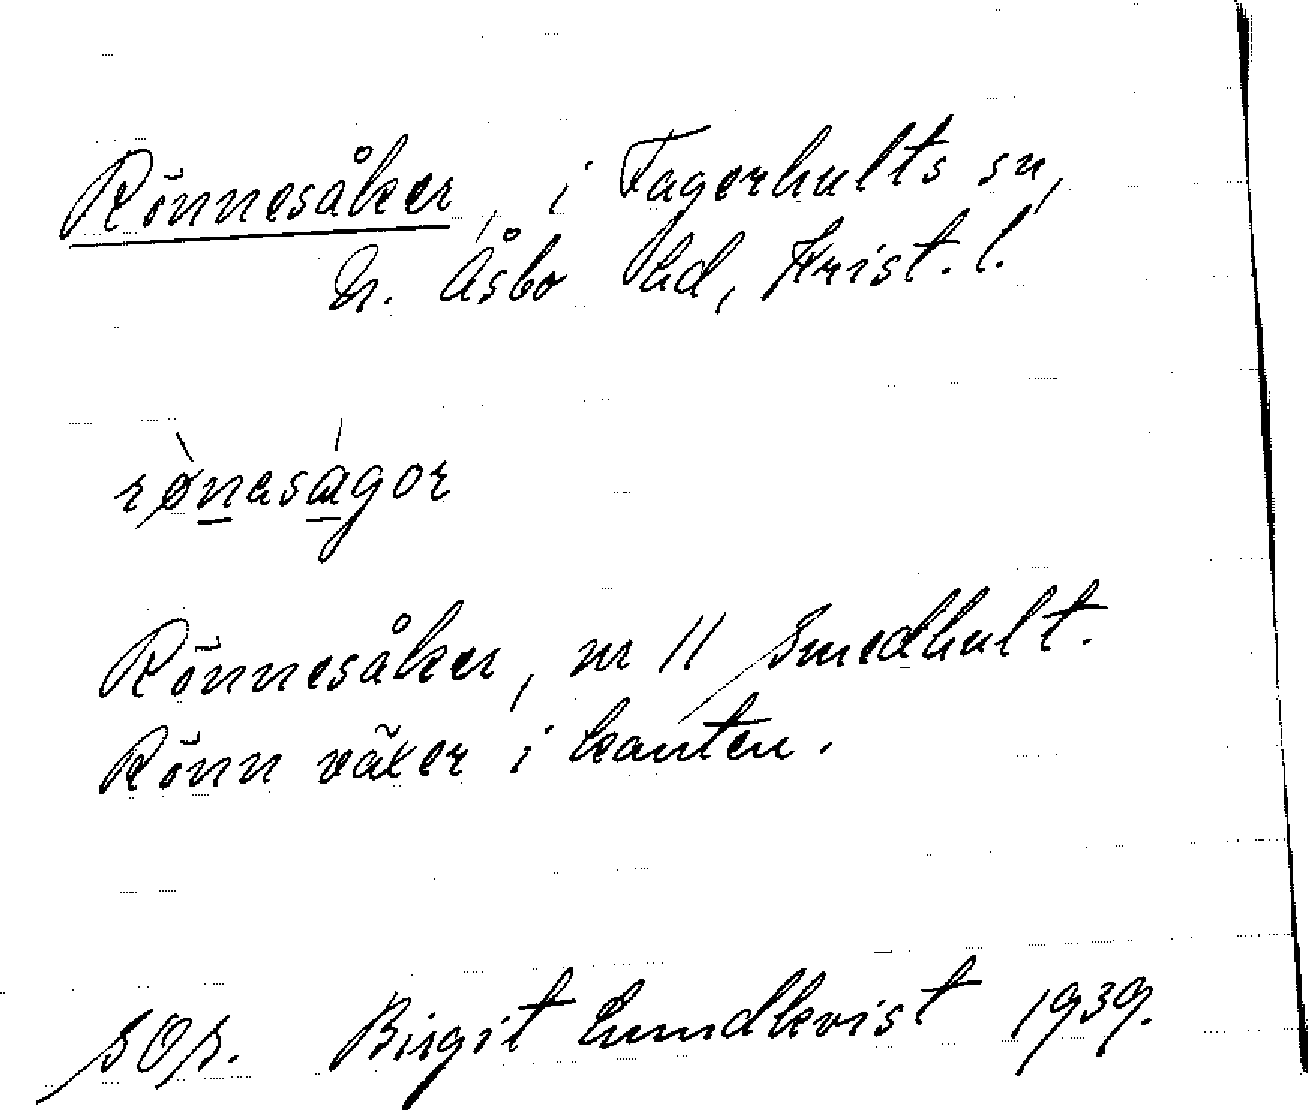 Rönnesåker, i Fagerhults sn,
N. Åsbo hd, Krist. l.
rønasågor
Rönnesåker, nr 11 Smedhult.
Rönn växer i kanten.
Birgit Lundkvist 1939.